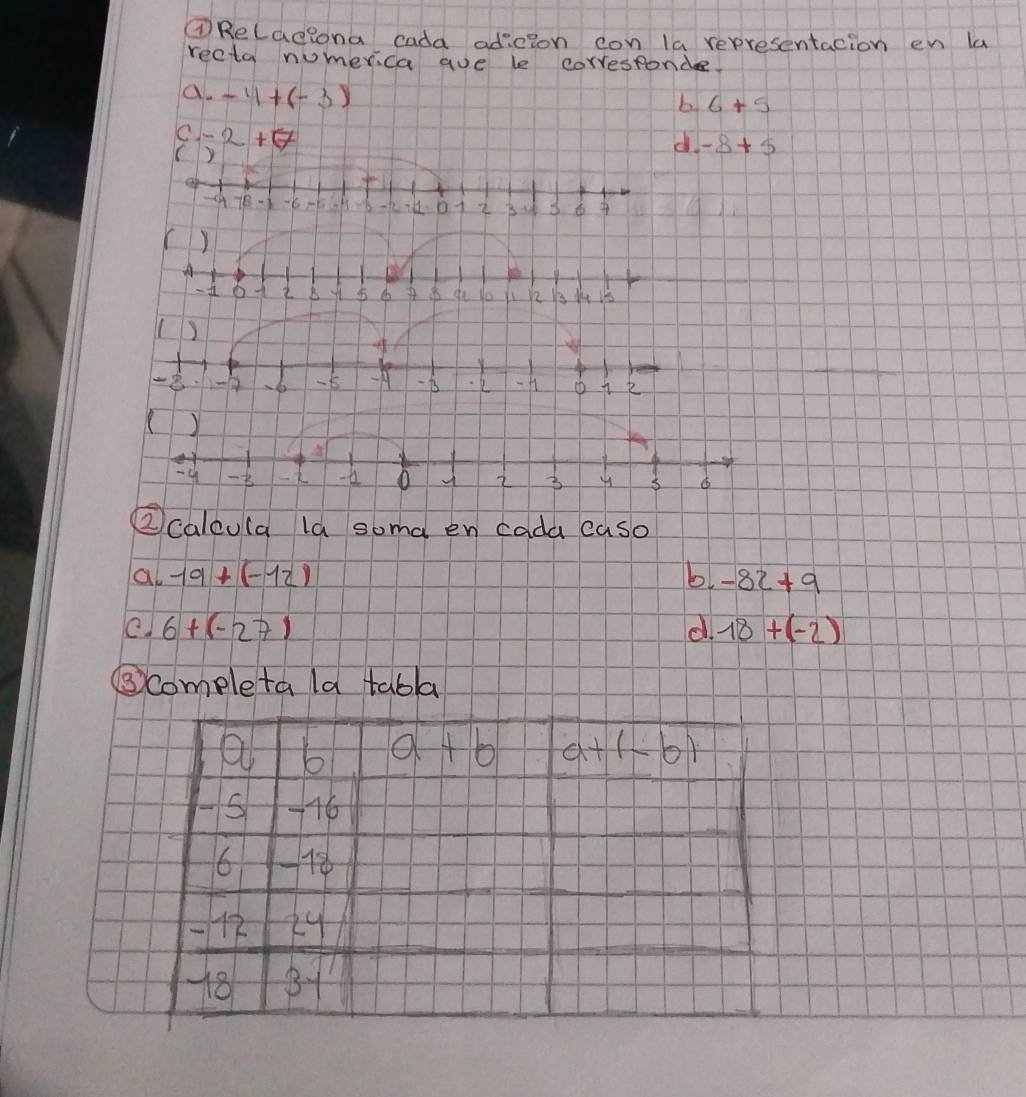 ① Relaciona cada adicion con la representacion en la
recta numerica que le corresponde.
a. -4+(-3) b. 6+5
c. -2+7 d. -8+5
( )
-9 -8 -7 -6 -5 -4 -3 -2 -1 0 1 2 3 4 5 6 7
( )
-1 0 1 2 3 4 5 6 7 8 9 10 11 12 13 14 15
( )
-8 -7 -6 -5 -4 -3 -2 -1 0 1 2
( )
-4 -3 -2 -1 0 1 2 3 4 5 6
② calcula la suma en cada caso
a. -19+(-12) b. -82+9
c. 6+(-27) d. 18+(-2)
③ completa la tabla
a b a+b a+(-b)
-5 -16
6 -18
-12 24
-18